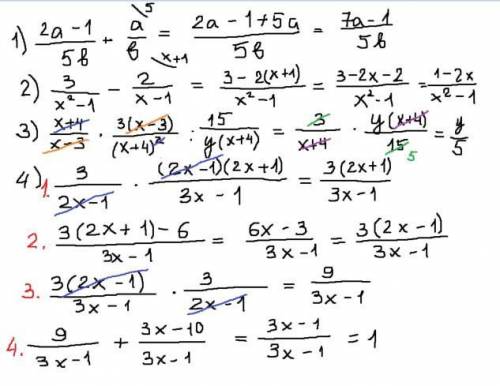 1) (2a-1)/5b + a/b^{\5} = (2a-1+5a)/5b = (7a-1)/5b
2) 3/(x²-1) - 2/(x-1)^{\x+1} = (3-2(x+1))/(x²-1) = (3-2x-2)/(x²-1) = (1-2x)/(x²-1)
3) (x+4)/(x-3) · 3(x-3)/(x+4)² : 15/y(x+4) = 3/(x+4) · y(x+4)/15 5 = y/5
4) 1. 3/(2x-1) · (2x-1)(2x+1)/(3x-1) = 3(2x+1)/(3x-1)
2. (3(2x+1)-6)/(3x-1) = (6x-3)/(3x-1) = 3(2x-1)/(3x-1)
3. 3(2x-1)/(3x-1) · 3/(2x-1) = 9/(3x-1)
4. 9/(3x-1) + (3x-10)/(3x-1) = (3x-1)/(3x-1) = 1